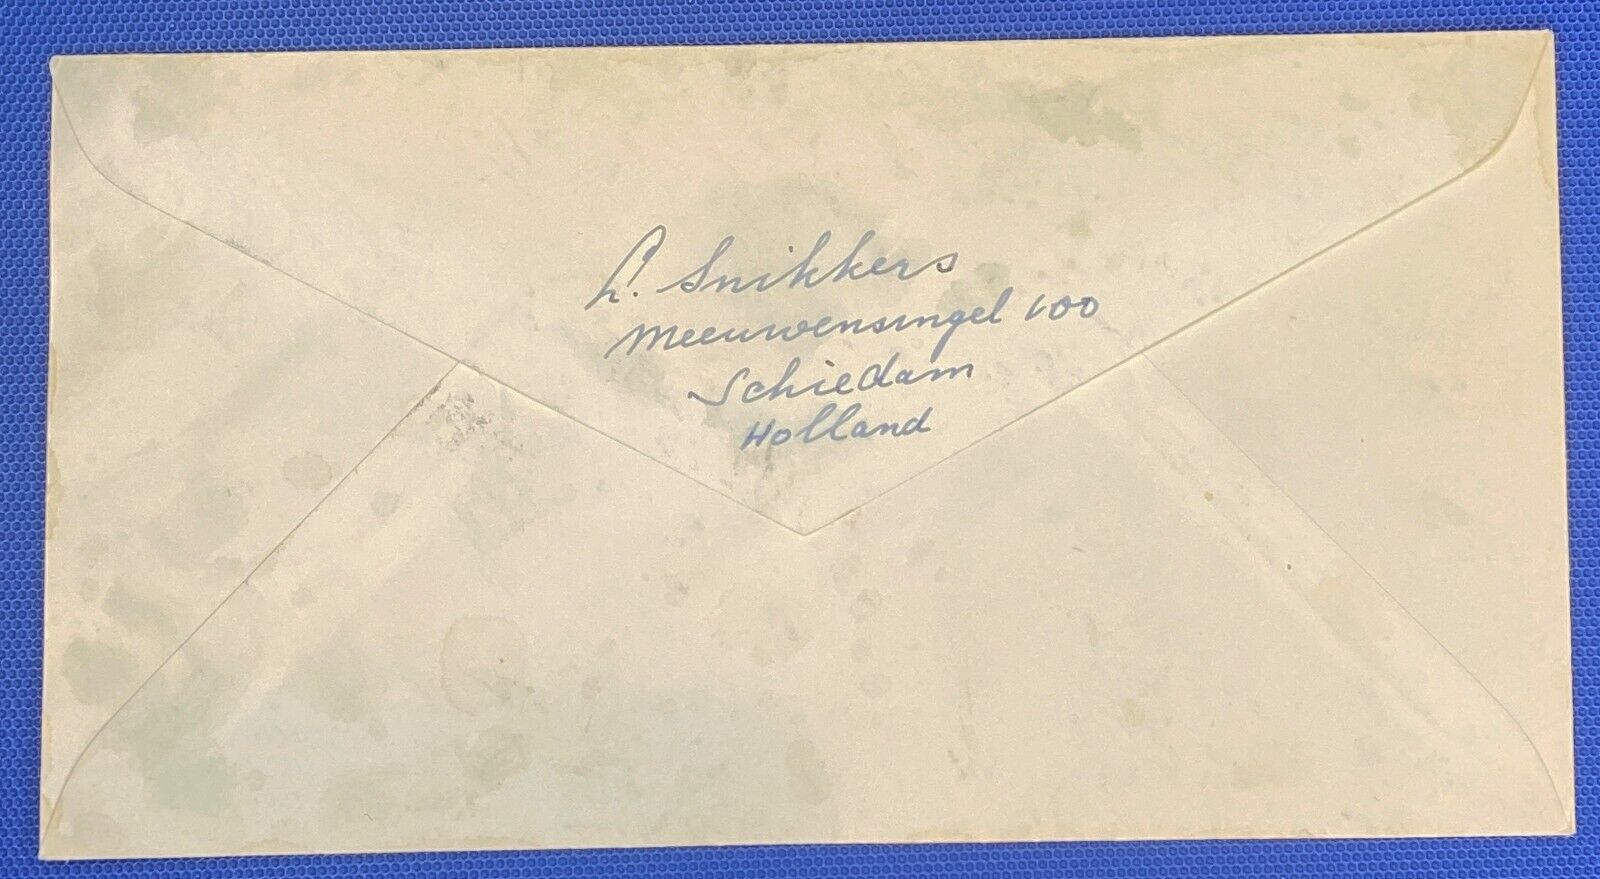 L. Snikkers
Meeuwensingel 100
Schiedam
Holland